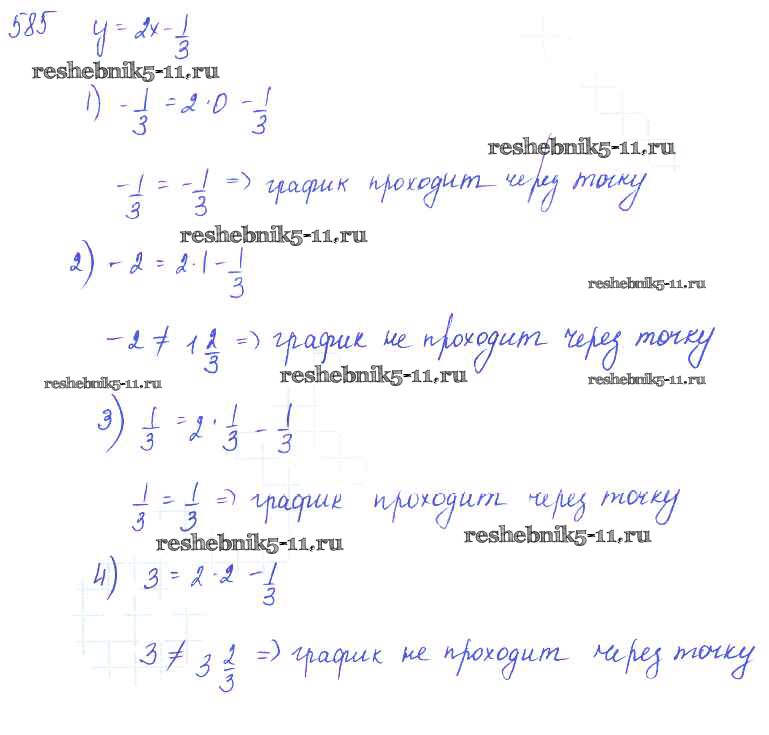 585 y = 2x - 1/3
reshebnik5-11.ru
1) - 1/3 = 2 · 0 - 1/3
reshebnik5-11.ru
- 1/3 = - 1/3 => график проходит через точку
reshebnik5-11.ru
2) - 2 = 2 · 1 - 1/3
reshebnik5-11.ru
- 2 ≠ 1 2/3 => график не проходит через точку
reshebnik5-11.ru reshebnik5-11.ru reshebnik5-11.ru
3) 1/3 = 2 · 1/3 - 1/3
1/3 = 1/3 => график проходит через точку
reshebnik5-11.ru reshebnik5-11.ru
4) 3 = 2 · 2 - 1/3
3 ≠ 3 2/3 => график не проходит через точку